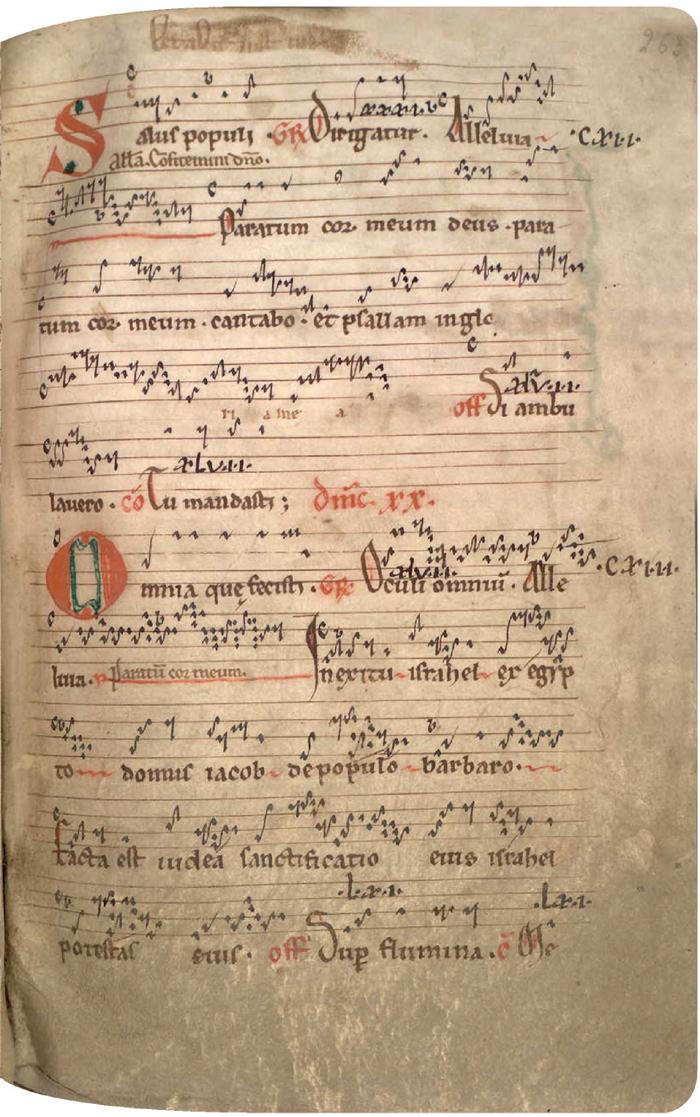 263
Salus populi .GR Dirigatur. Alleluia .CXII.
Alla. Cofitemini dno.
Paratum cor meum deus .para
tum cor meum .cantabo .et psallam in glo
ri a me a off Si ambu
lauero . co Tu mandasti ; dnic. xx.
Omnia quę fecisti .GR Oculi omniu. Alle
luia. Paratu cor meum. In exitu israhel ex egip
to domus iacob de populo barbaro.
facta est iudea sanctificatio eius israhel
potestas eius. off Sup flumina. c Me